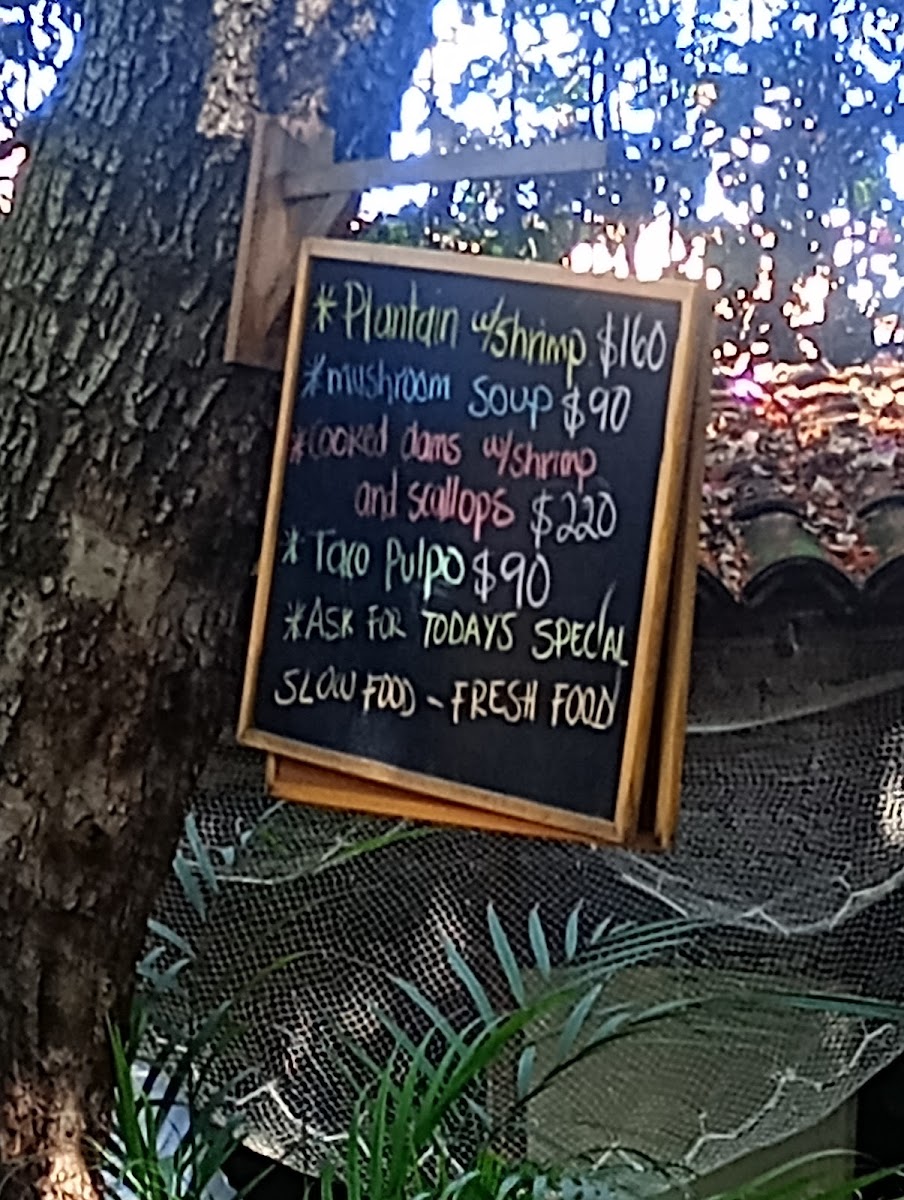 *Plantain w/shrimp $160
*mushroom soup $90
*Cooked clams w/shrimp
and scallops $220
*Taco Pulpo $90
*ASK FOR TODAYS SPECIAL
SLOW FOOD - FRESH FOOD